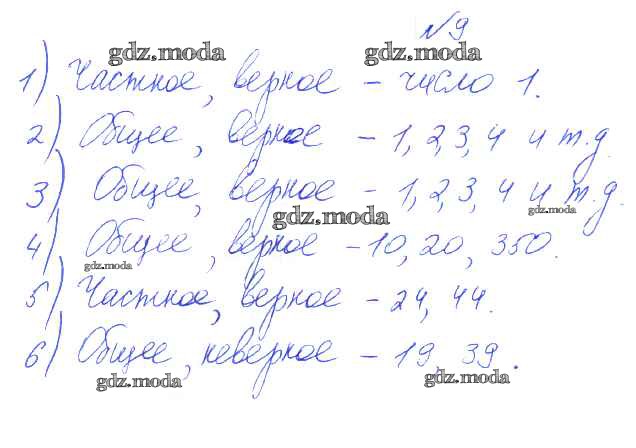 №9
gdz.moda gdz.moda
1) Частное, верное – число 1.
2) Общее, верное – 1, 2, 3, 4 и т.д.
3) Общее, верное – 1, 2, 3, 4 и т.д.
gdz.moda gdz.moda
4) Общее, верное – 10, 20, 350.
gdz.moda
5) Частное, верное – 24, 44.
6) Общее, неверное – 19, 39.
gdz.moda gdz.moda